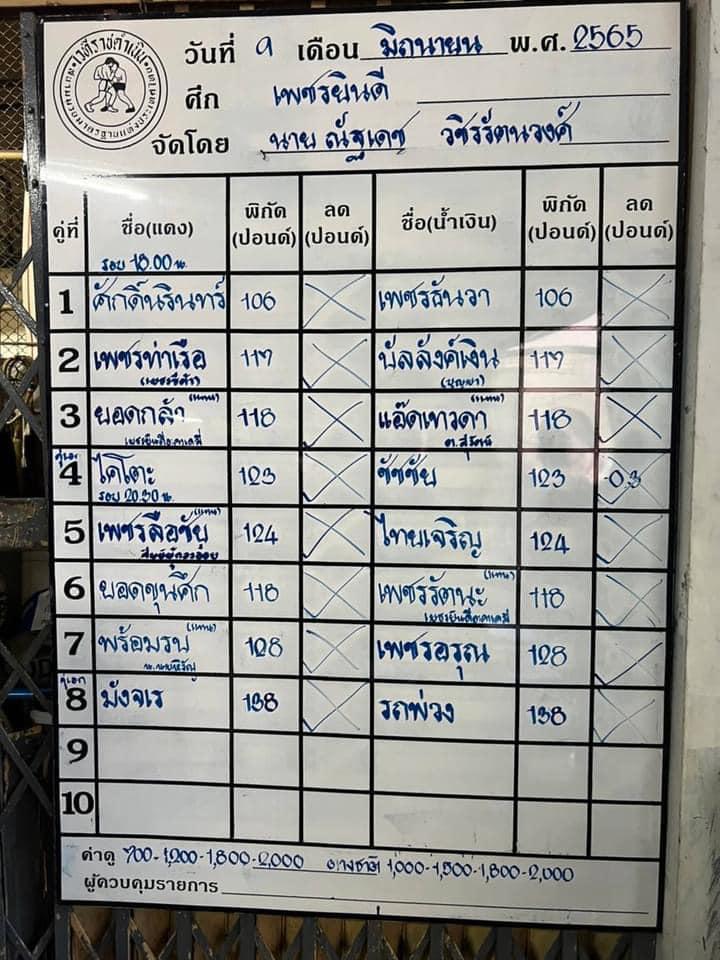 เวทีราชดำเนิน
วันที่ ๑ เดือน มิถุนายน พ.ศ. 2565
ศึก เพชรยินดี
จัดโดย นาย ณัฐเดช วชิรรัตนวงศ์
คู่ที่ ชื่อ(แดง) พิกัด (ปอนด์) ลด (ปอนด์) ชื่อ(น้ำเงิน) พิกัด (ปอนด์) ลด (ปอนด์)
รอบ 18.00 น.
1 ศักดิ์นรินทร์ 106 เพชรธันวา 106
2 เพชรท่าเรือ 117 บัลลังค์เงิน 117
3 ยอดกล้า (แทน) 118 แอ๊ดเทวดา (แทน) 118
เพชรยินดีอะคาเดมี่
คู่เอก
4 ไดโตะ 123 ชัชชัย 123 0.3
รอบ 20.30 น.
5 เพชรลือชัย (แทน) 124 ไทยเจริญ 124
6 ยอดขุนศึก 118 เพชรรัตนะ (แทน) 118
เพชรยินดีอะคาเดมี่
7 พร้อมรบ (แทน) 128 เพชรอรุณ 128
คู่เอก
8 มังจเร 138 รถพ่วง 138
9
10
ค่าดู 700-1,200-1,800-2,000 ต่างชาติ 1,000-1,500-1,800-2,000
ผู้ควบคุมรายการ